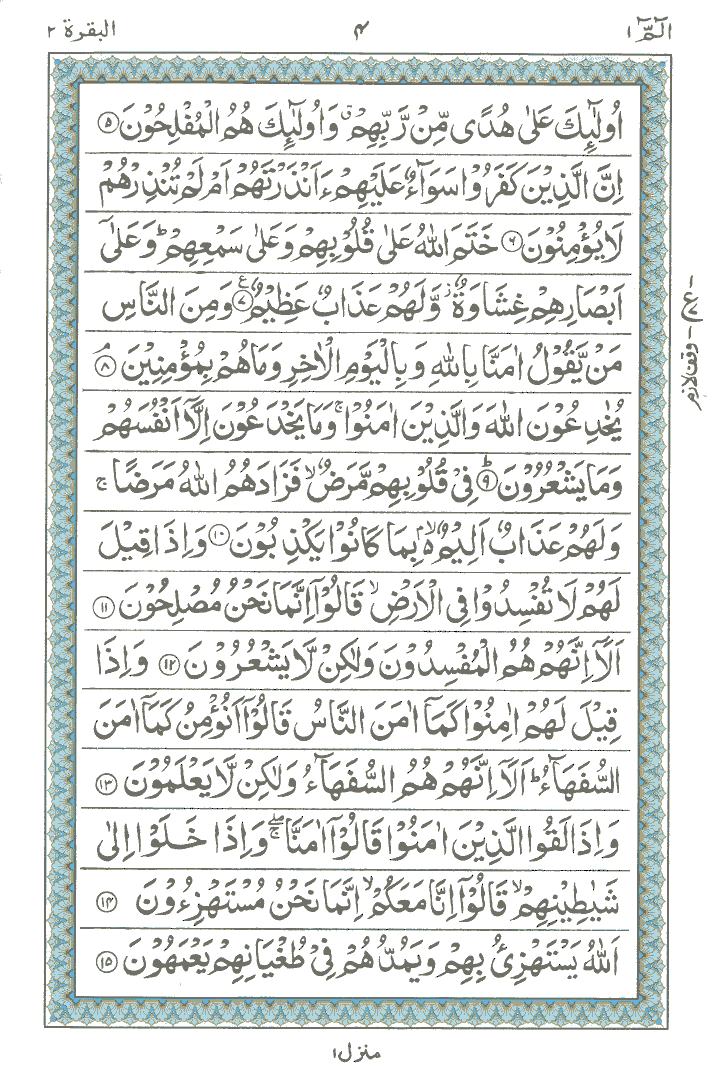 الٓمّٓ ١ ۴ البقرة ٢
اُولٰٓئِكَ عَلٰى هُدًى مِّنْ رَّبِّهِمْ ۗ وَاُولٰٓئِكَ هُمُ الْمُفْلِحُوْنَ ۝۵
اِنَّ الَّذِيْنَ كَفَرُوْا سَوَآءٌ عَلَيْهِمْ ءَاَنْذَرْتَهُمْ اَمْ لَمْ تُنْذِرْهُمْ
لَا يُؤْمِنُوْنَ ۝۶ خَتَمَ اللّٰهُ عَلٰى قُلُوْبِهِمْ وَعَلٰى سَمْعِهِمْ ؕ وَعَلٰٓى
اَبْصَارِهِمْ غِشَاوَةٌ ز وَّلَهُمْ عَذَابٌ عَظِيْمٌ ۝۷ ع وَمِنَ النَّاسِ
مَنْ يَّقُوْلُ اٰمَنَّا بِاللّٰهِ وَبِالْيَوْمِ الْاٰخِرِ وَمَا هُمْ بِمُؤْمِنِيْنَ ۝۸ۘ
يُخٰدِعُوْنَ اللّٰهَ وَالَّذِيْنَ اٰمَنُوْا ۚ وَمَا يَخْدَعُوْنَ اِلَّآ اَنْفُسَهُمْ
وَمَا يَشْعُرُوْنَ ۝۹ؕ فِيْ قُلُوْبِهِمْ مَّرَضٌ ۙ فَزَادَهُمُ اللّٰهُ مَرَضًا ۚ
وَلَهُمْ عَذَابٌ اَلِيْمٌ ۙ بِمَا كَانُوْا يَكْذِبُوْنَ ۝۱۰ وَاِذَا قِيْلَ
لَهُمْ لَا تُفْسِدُوْا فِى الْاَرْضِ ۙ قَالُوْٓا اِنَّمَا نَحْنُ مُصْلِحُوْنَ ۝۱۱
اَلَآ اِنَّهُمْ هُمُ الْمُفْسِدُوْنَ وَلٰكِنْ لَّا يَشْعُرُوْنَ ۝۱۲ وَاِذَا
قِيْلَ لَهُمْ اٰمِنُوْا كَمَآ اٰمَنَ النَّاسُ قَالُوْٓا اَنُؤْمِنُ كَمَآ اٰمَنَ
السُّفَهَآءُ ؕ اَلَآ اِنَّهُمْ هُمُ السُّفَهَآءُ وَلٰكِنْ لَّا يَعْلَمُوْنَ ۝۱۳
وَاِذَا لَقُوا الَّذِيْنَ اٰمَنُوْا قَالُوْٓا اٰمَنَّا ۖۚ وَاِذَا خَلَوْا اِلٰى
شَيٰطِيْنِهِمْ ۙ قَالُوْٓا اِنَّا مَعَكُمْ ۙ اِنَّمَا نَحْنُ مُسْتَهْزِءُوْنَ ۝۱۴
اَللّٰهُ يَسْتَهْزِئُ بِهِمْ وَيَمُدُّهُمْ فِيْ طُغْيَانِهِمْ يَعْمَهُوْنَ ۝۱۵
وقف لازم
منزل ١